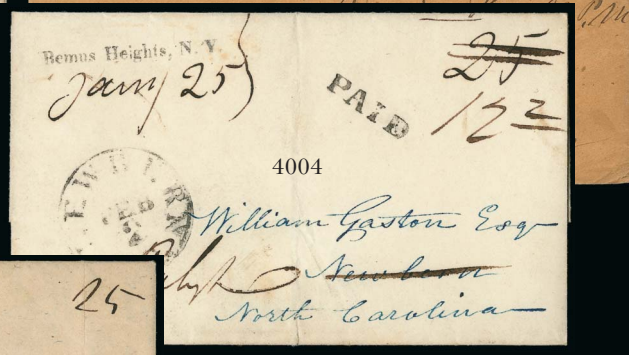 Bemus Heights, N. Y.
Jany 25
25
PAID
12 2
4004
EWBERN
William Gaston Esqr
Newbern
North Carolina
25